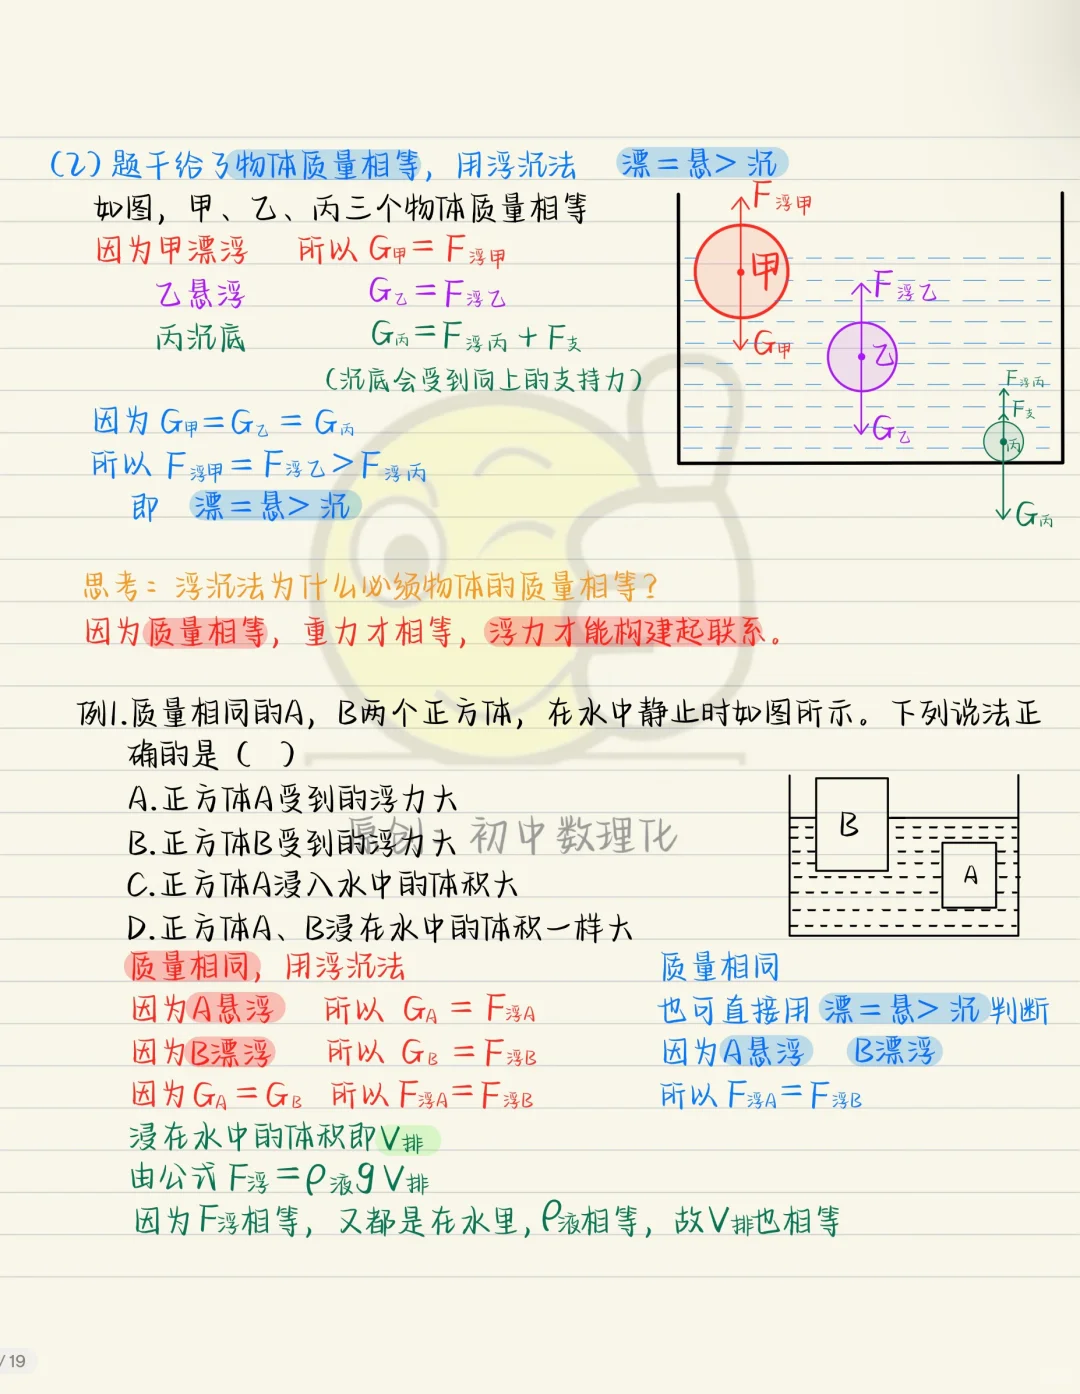 (2)题干给了物体质量相等，用浮沉法 漂=悬>沉
如图，甲、乙、丙三个物体质量相等
因为甲漂浮 所以 G甲=F浮甲
乙悬浮 G乙=F浮乙
丙沉底 G丙=F浮丙+F支
(沉底会受到向上的支持力)
因为 G甲=G乙=G丙
所以 F浮甲=F浮乙>F浮丙
即 漂=悬>沉
F浮甲
甲
G甲
F浮乙
乙
G乙
F浮丙
F支
丙
G丙
思考：浮沉法为什么必须物体的质量相等？
因为质量相等，重力才相等，浮力才能构建起联系。
例1.质量相同的A，B两个正方体，在水中静止时如图所示。下列说法正
确的是（ ）
A.正方体A受到的浮力大
B.正方体B受到的浮力大
C.正方体A浸入水中的体积大
D.正方体A、B浸在水中的体积一样大
B
A
原创：初中数理化
质量相同，用浮沉法
因为A悬浮 所以 GA=F浮A
因为B漂浮 所以 GB=F浮B
因为GA=GB 所以F浮A=F浮B
质量相同
也可直接用 漂=悬>沉 判断
因为A悬浮 B漂浮
所以F浮A=F浮B
浸在水中的体积即V排
由公式 F浮=ρ液gV排
因为F浮相等，又都是在水里，ρ液相等，故V排也相等
/19